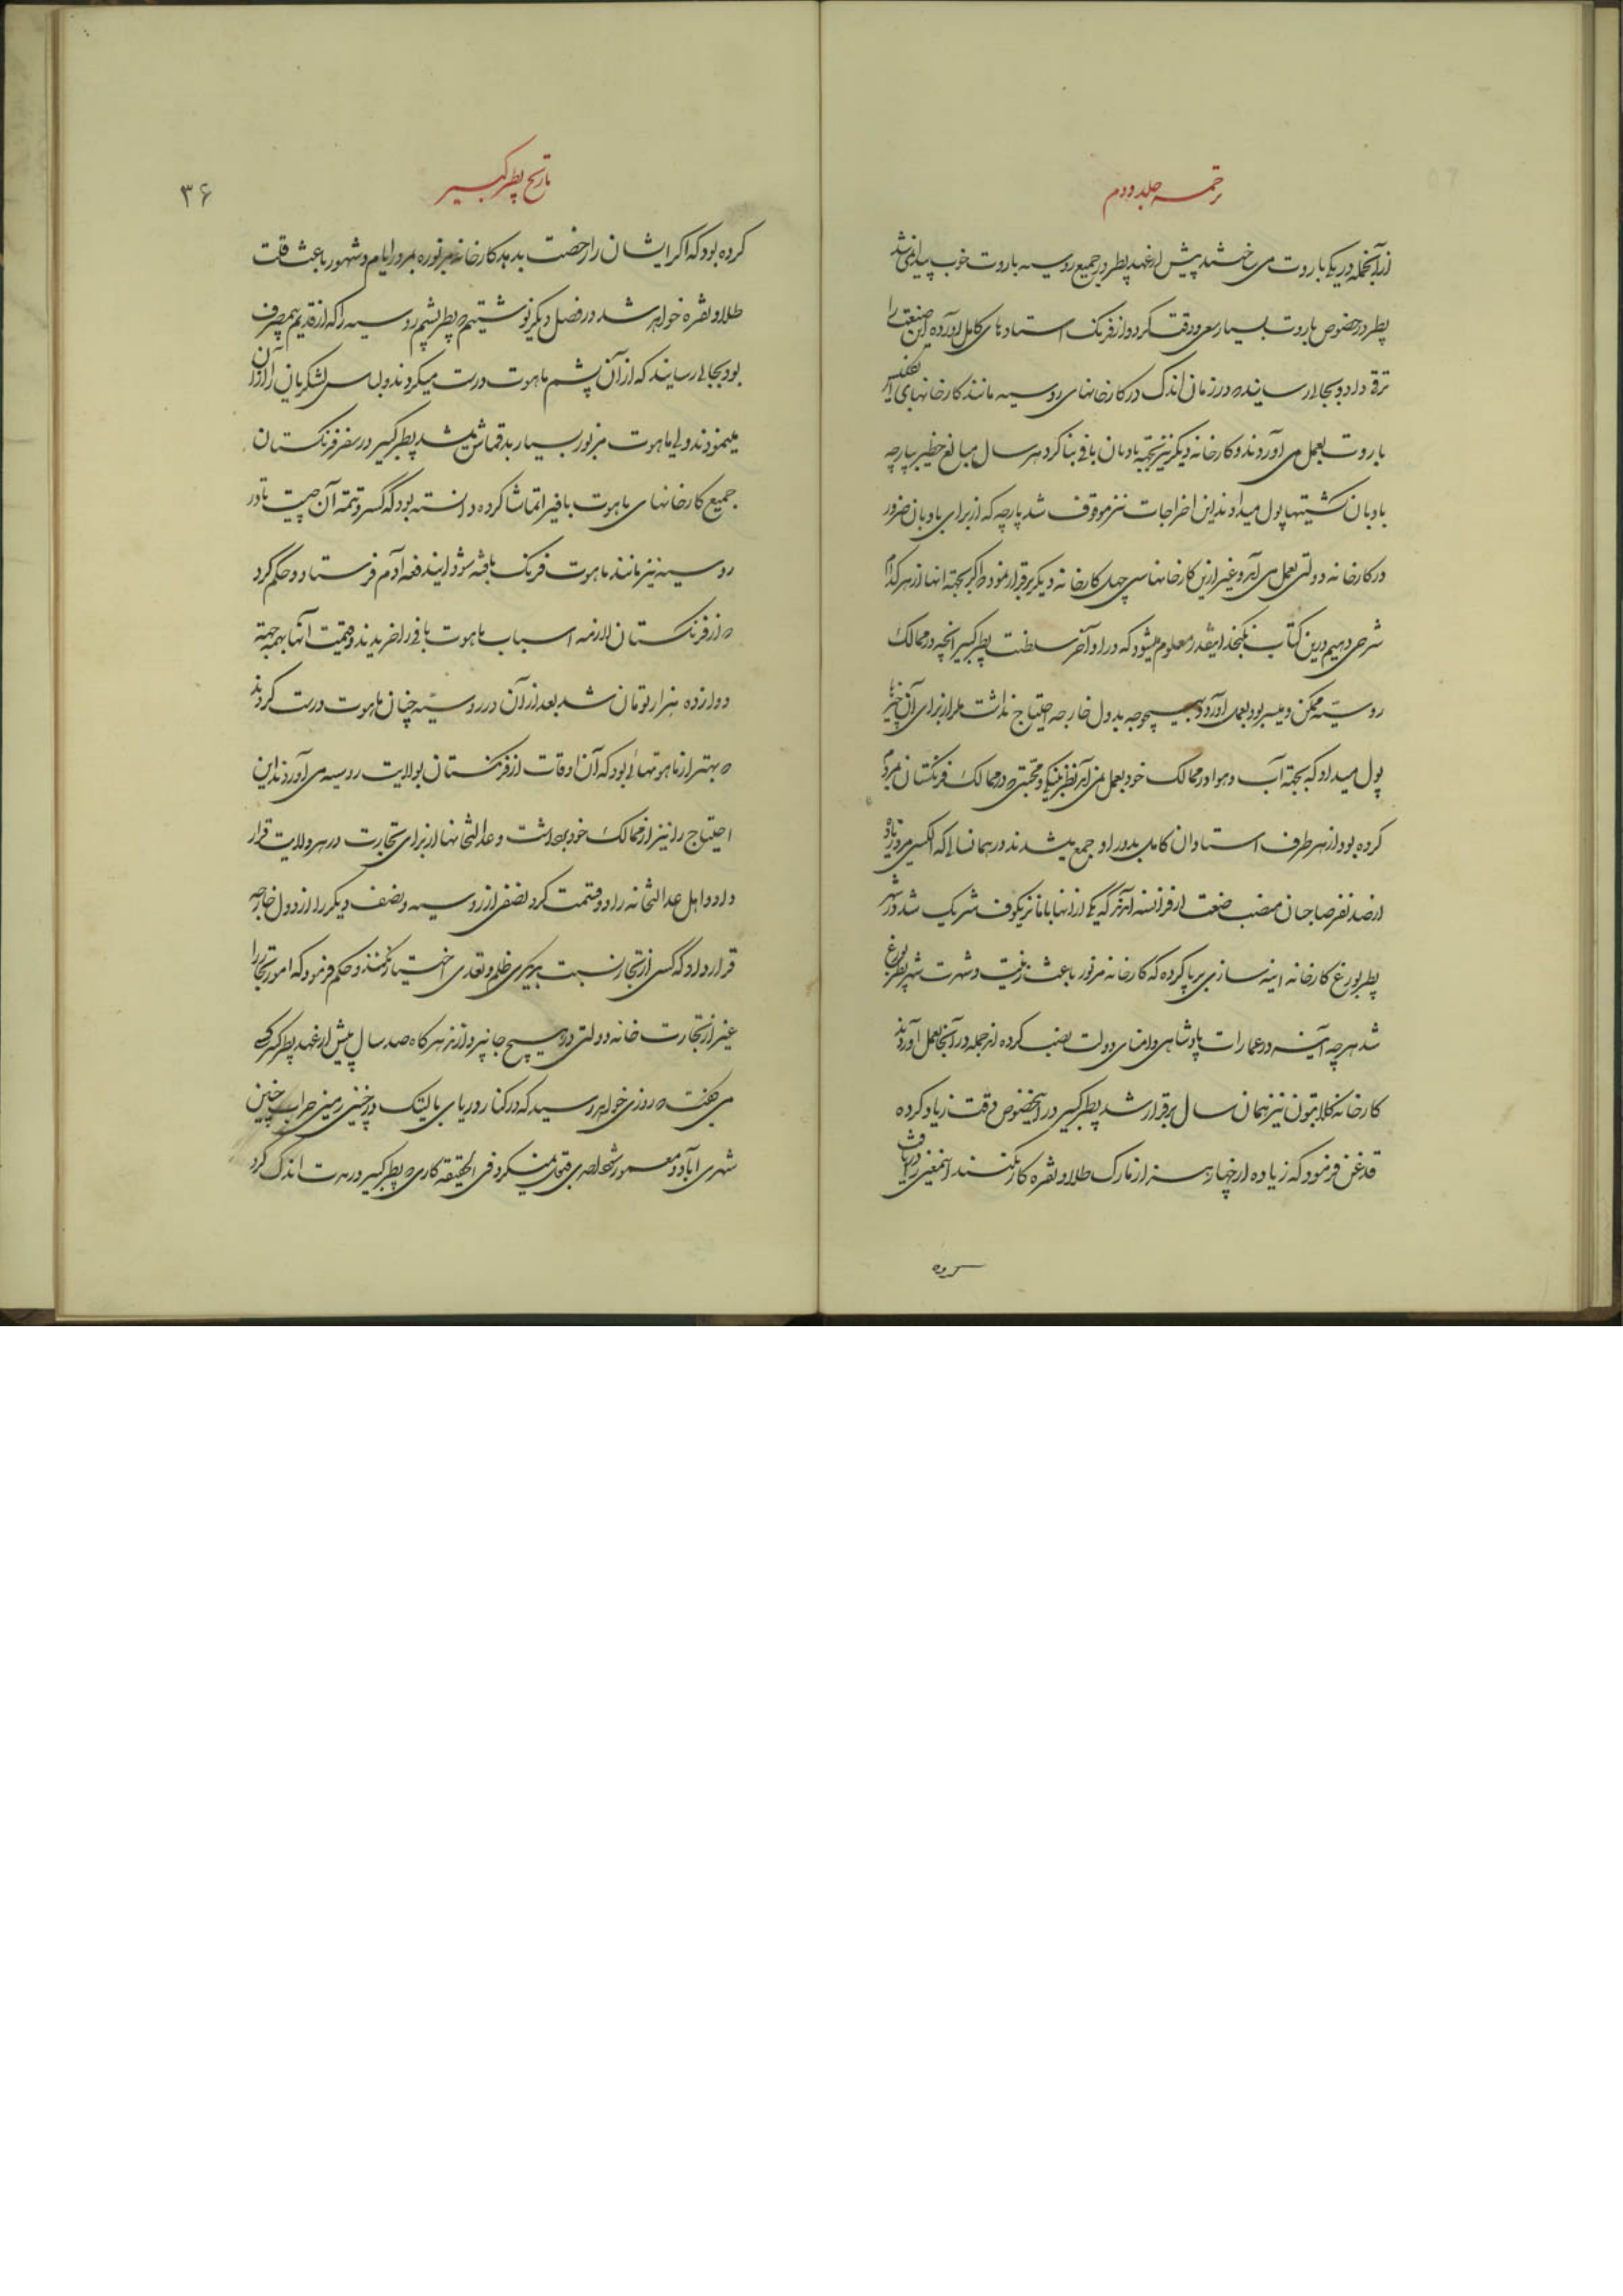 ترجمه جلد دوم
از آنجمله در یکی باروت می ساختند پیش از عهد پطر در جمیع روسیه باروت خوب پیدا نمی شد
پطر در خصوص باروت بسیار سعی و دقت کرد و از فرنک استادهای کامل آورده این صنعت را
ترقی داد و بجائی رسانید که در زمان اندک در کارخانهای روسیه مانند کارخانهای انگلیس
باروت بعمل می آوردند و کارخانه دیکر نیز بجهة بادبان بافی بنا کرد هر سال مبالغ خطیر بپارچه
بادبان کشتیها پول میدادند این اخراجات نیز موقوف شد پارچه که از برای بادبان ضرور
در کارخانه دولتی بعمل می آمد و غیر ازین کارخانها سی چهل کارخانه دیکر برقرار نمود که اکر بجهة انها از هر کدام
شرحی دهیم درین کتاب نکنجد اینقدر معلوم میشود که در اواخر سلطنت پطر کبیر انچه در ممالک
روسیه ممکن و میسر بود بعمل آورد و بهیچوجه بدول خارجه احتیاج نداشت مکر از برای آن چیزها
پول میداد که بجهة آب و هوا در ممالک خود بعمل نمی آمد نظر بنیکی و محبتی که در ممالک فرنکستان بمردم
کرده بود از هر طرف استادان کامل بدور او جمع میشدند در همان سالی که الکسی مرد زیاده
از صد نفر صاحبان منصب صنعت از فرانسه آمد که یکی از انها با مانژیکوف شریک شد در شهر
پطربورغ کارخانه اینه سازی برپا کرده که کارخانه مزبور باعث زینت و شهرت شهر پطربورغ
شد هر چه آینه در عمارات پادشاهی و امنای دولت نصب کرده اند جمله در آنجا بعمل آوردند
کارخانه کلابتون نیز همان سال برقرار شد پطر کبیر در اینخصوص دقت زیاد کرده
قدغن فرمود که زیاده از چهار هزار مارک طلا و نقره کار نکنند اینمعنی را دریافت
کرده
تاریخ پطر کبیر
۳۶
کرده بود که اکر ایشان را رخصت بدهد کارخانه مزبوره بمرور ایام و شهور باعث قلت
طلا و نقره خواهد شد در فصل دیکر نوشتیم که پطر پشم روسیه را که از قدیم بیمصرف
بود بجائی رسانید که از آن پشم ماهوت درست میکردند و لباس لشکریان را از آن
مینمودند ولی ماهوت مزبور بسیار بدقماش میشد پطر کبیر در سفر فرنکستان
جمیع کارخانهای ماهوت بافی را تماشا کرده دانسته بود که کسر و تتمه آن چیست تا در
روسیه نیز مانند ماهوت فرنک بافته شود ایندفعه آدم فرستاد و حکم کرد
که از فرنکستان لازمه اسباب ماهوت بافی را خریدند و قیمت انها بهمه جهة
دوازده هزار تومان شد بعد از آن در روسیه چنان ماهوت درست کردند
که بهتر از ماهوتهائی بود که آن اوقات از فرنکستان بولایت روسیه می آوردند این
احتیاج را نیز از ممالک خود برداشت و عدالتخانها از برای تجارت در هر ولایت قرار
داد و اهل عدالتخانه را دو قسمت کرد نصفی از روسیه و نصف دیکر را از دول خارجه
قرار داد که کسی از تجار نسبت بدیکری ظلم و تعدی اختیار نکنند و حکم فرمود که امور تجار را
غیر از تجارت خانه دولتی در هیچ جا نپردازند هرکاه صد سال پیش از عهد پطر کبیر کسی
می کفت که روزی خواهد رسید که در کنار دریای بالتیک در چنین زمینی خراب چنین
شهری آباد و معمور شود احدی قبول نمیکرد فی الحقیقه کاری که پطر کبیر در مدت اندک کرد